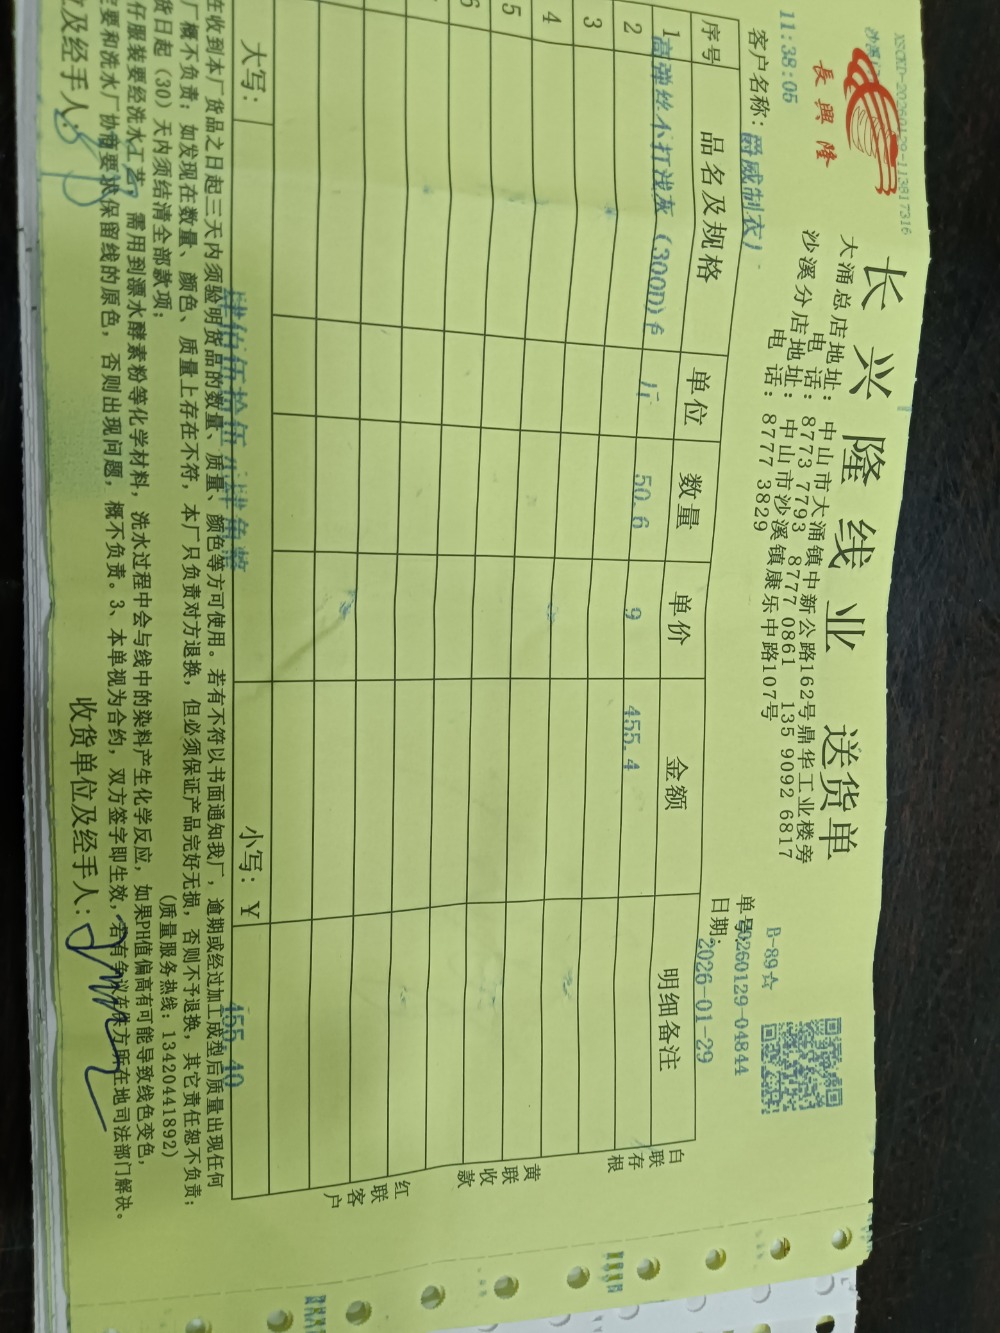 XSCKD-20260129-113817316
長興隆
长兴隆线业 送货单
大涌总店地址：中山市大涌镇中新公路162号鼎华工业楼旁
电话：8773 7793 8777 0861 135 9092 6817
沙溪分店地址：中山市沙溪镇康乐中路107号
电话：8777 3829
B-89☆
11:38:05
单号：20260129-04844
客户名称：爵威制衣
日期：2026-01-29
序号 品名及规格 单位 数量 单价 金额 明细备注
1 高弹丝不打浅灰（300D）6 50.6 9 455.4
2
3
4
5
6
大写：肆佰伍拾伍元肆角整 小写：￥ 455.40
在收到本厂货品之日起三天内须验明货品的数量、质量、颜色等方可使用。若有不符以书面通知我厂，逾期或经过加工成型后质量出现任何
厂概不负责；如发现在数量、颜色、质量上存在不符，本厂只负责对方退换，但必须保证产品完好无损，否则不予退换，其它责任恕不负责；
货日起（30）天内须结清全部款项； （质量服务热线：13420441892）
仔服装要经洗水工艺，需用到漂水酵素粉等化学材料，洗水过程中会与线中的染料产生化学反应，如果PH值偏高有可能导致线色变色，
要和洗水厂协商要求保留线的原色，否则出现问题，概不负责。3、本单视为合约，双方签字即生效，若有争议在供方所在地司法部门解决。
位及经手人： 收货单位及经手人：
白联存根
黄联收款
红联客户